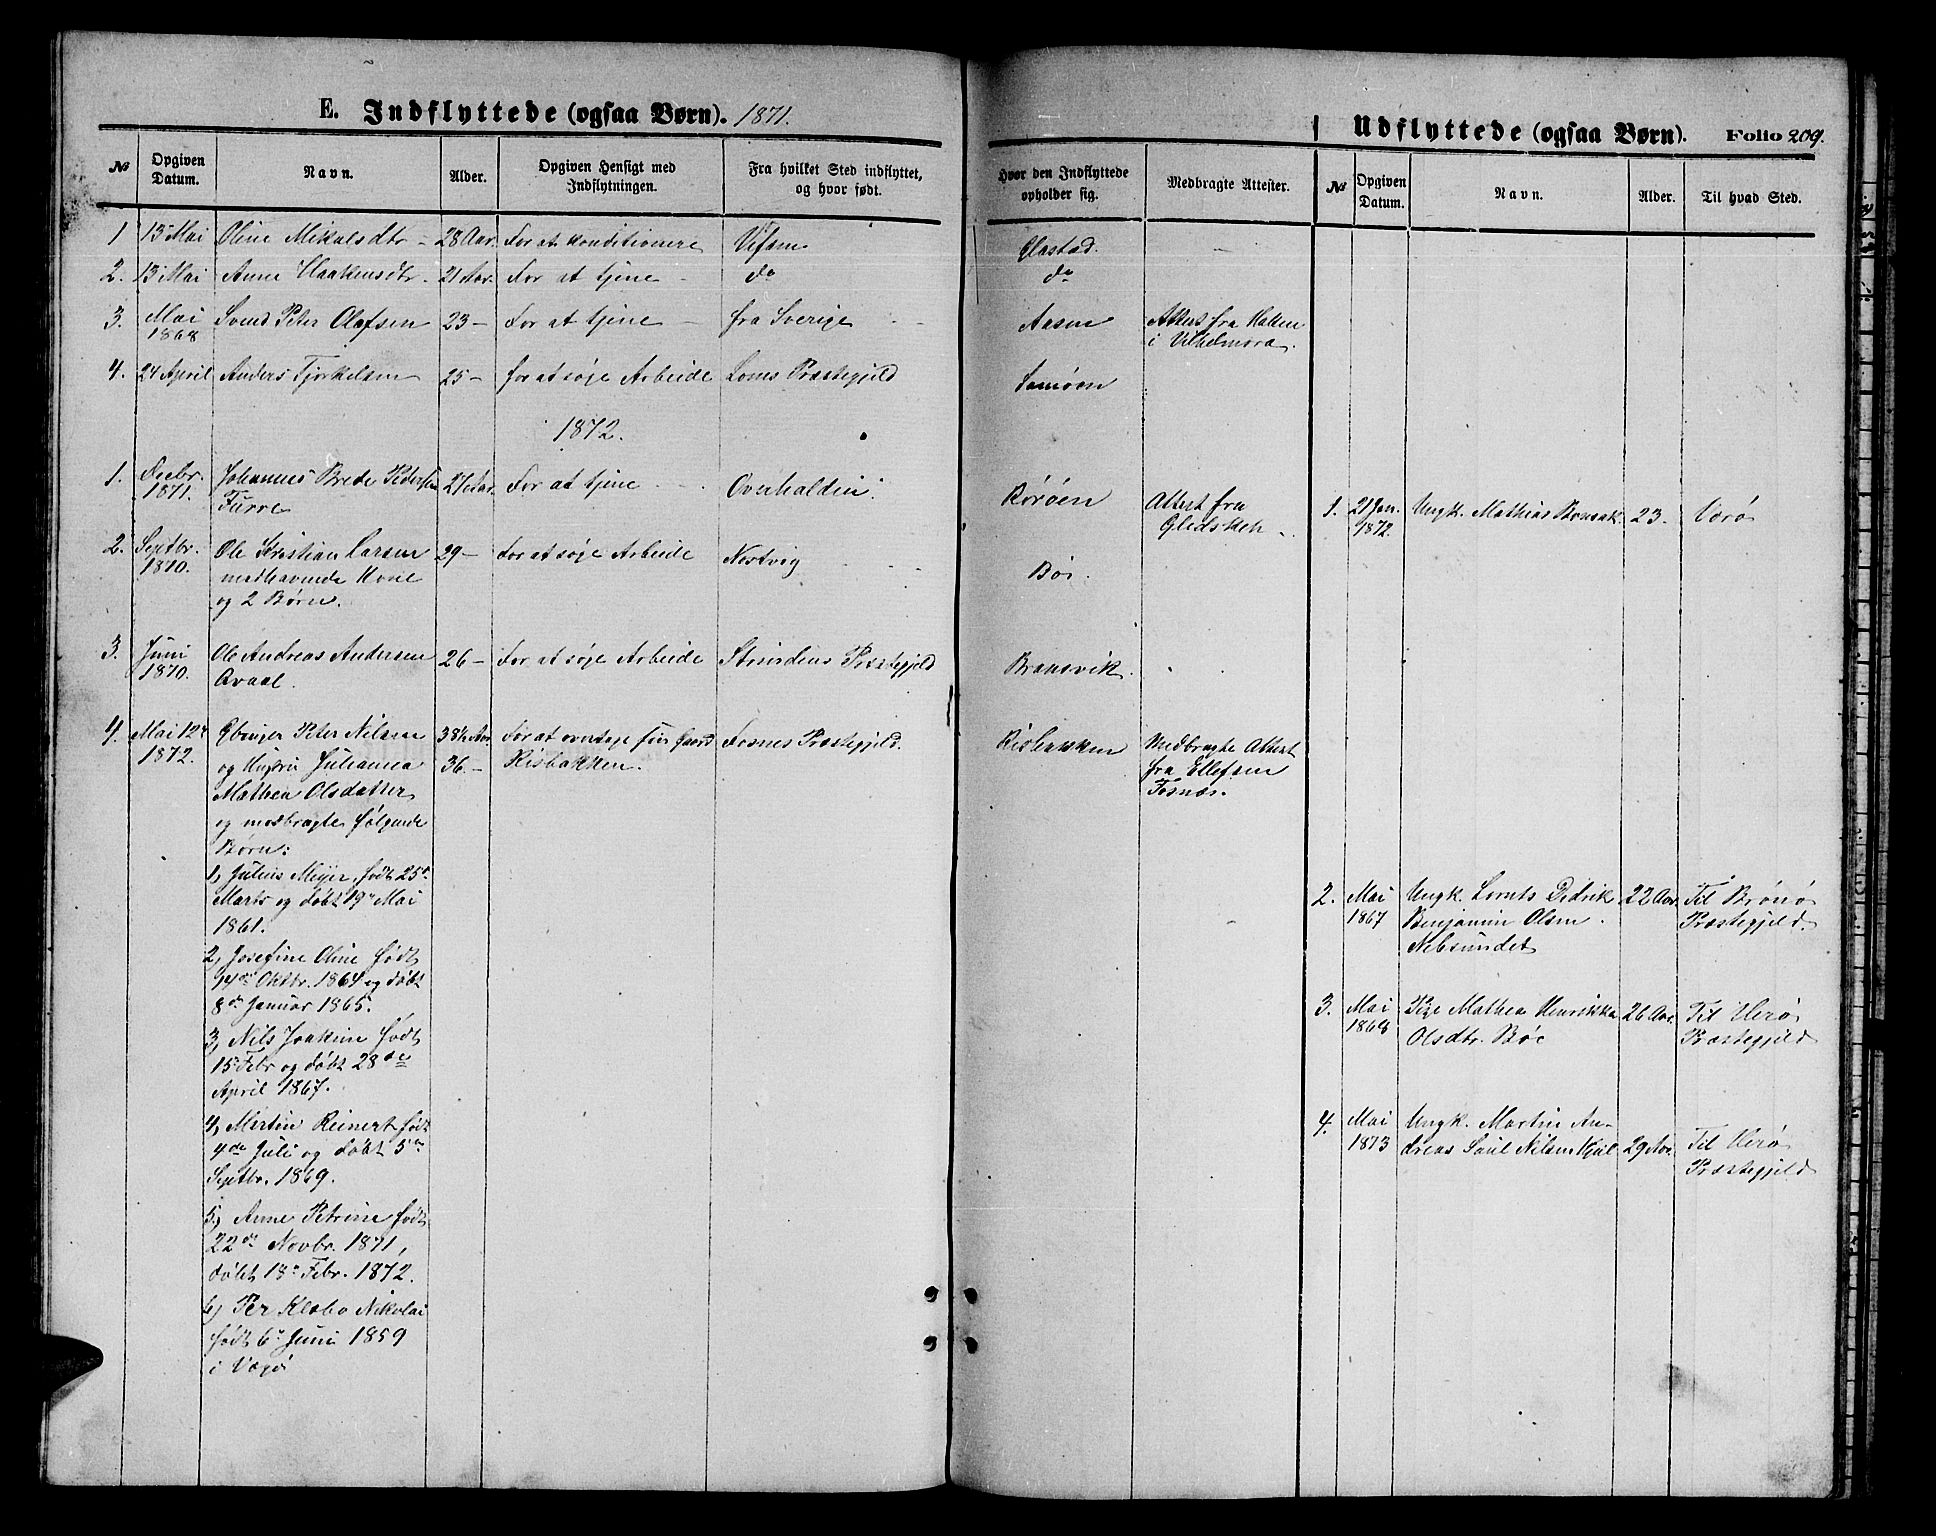 E. Indflyttede (ogsaa Børn). 1871.
№
Opgiven
Datum.
Navn.
Alder.
Opgiven Hensigt med
Indflytningen.
Fra hvilket Sted indflyttet,
og hvor født.
1 13 Mai Oline Mikalsdtr - 28 Aar. For at konditionere Vefsen
2. 13 Mai Anne Haakensdtr. 21 Aar. For at tjene - do
3. Mai
1868
Svend Peter Olafsen 23 - For at tjene - fra Sverige
4. 24 April Anders Tjorkelsen 25 - for at søje Arbeide Loms Præstegjeld
1872.
1. Decbr.
1871.
Johannes Brede Pedersen
Farre
27 Aar. For at tjene - Overhalden.
2. Septbr.
1870.
Ole Kristian Larsen
medhavende Kone
og 2 Børn.
29 - For at søje Arbeide
3. Juni
1870.
Ole Andreas Andersen
26 - For at søje Arbeide Strindens Præstegjeld
4. Mai 12te
1872.
Peter Nilsen
og Hustru Julianna
Mathea Olsdatter
og medbragte følgende
Børn:
38½ Aar.
36. -
For at overtage sin Gaard
Risbakken.
Fosnes Præstegjeld.
1, Julius Meyer, født 25de
Marts og døbt 19de Mai
1861.
2, Josefine Oline født
14de Oktbr. 1864 og døbt
8de Januar 1865.
3, Nils Joakim født
15 Febr og døbt 28de
April 1867.
4, Martin Reinert født
4de Juli og døbt 5te
Septbr. 1869.
5, Anne Petrine født
22de Novbr. 1871,
døbt 18de Febr. 1872.
6, Per Klabo Nikolai
født 6te Juni 1859
i
Udflyttede (ogsaa Børn). Folio 209.
Hvor den Indflyttede
opholder sig.
Medbragte Attester.
№
Opgiven
Datum.
Navn.
Alder.
Til hvad Sted.
Olastad. -
do
Aasen
Attest fra
i Vilhelmora.
Rørøen
Attest fra
Bøe.
Bransvik.
Risbakken
Medbragte Attest
fra Ellefsen
Fosnæs.
1. 21 Jan.
1872.
Ungk. Mathias 23. Værø
2. Mai
1867
Ungk. Lornts Didrik
Benjamin Olsen.
Nebsundet
22 Aar. Til Brønø
Præstegjeld.
3. Mai
1868
Pige Mathea Henrikka
Olsdtr. Bøe
26 Aar. Til Herø
Præstegjeld
4. Mai
1873
Ungk. Martin An-
dreas Saul Nilsen
29 Aar. Til Herø
Præstegjeld